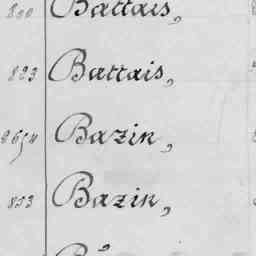 800 Battais,
823 Battais,
2654 Bazin,
853 Bazin,